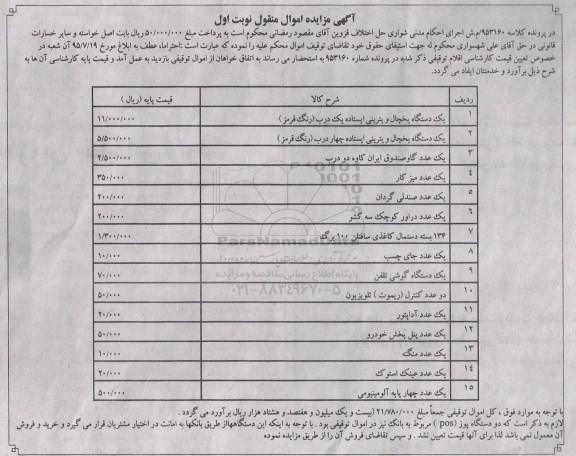 آگهی مزایده اموال منقول نوبت اول
در پرونده کلاسه ۹۵۳۱۶۰/م.ش اجرای احکام مدنی شورای حل اختلاف قزوین آقای مقصود رمضانی محکوم است به پرداخت مبلغ ۵۰/۰۰۰/۰۰۰ ریال بابت اصل خواسته و سایر خسارات
قانونی در حق آقای علی شهسواری محکوم له جهت استیفای حقوق خود تقاضای توقیف اموال محکم علیه را نموده که عبارت است :احتراما، عطف به ابلاغ مورخ ۹۵/۷/۱۹ آن شعبه در
خصوص تعیین قیمت کارشناسی اقلام توقیفی ذکر شده در پرونده شماره ۹۵۳۱۶۰ به استحضار می رساند به اتفاق خواهان از اموال توقیفی بازدید به عمل آمد و قیمت پایه کارشناسی آن ها به
شرح ذیل برآورد و خدمتتان ایفاد می گردد.
ردیف شرح کالا قیمت پایه (ریال )
۱ یک دستگاه یخچال و یترینی ایستاده یک درب (رنگ قرمز) ۱۱/۰۰۰/۰۰۰
۲ یک دستگاه یخچال و یترینی ایستاده چهار درب (رنگ قرمز) ۵/۵۰۰/۰۰۰
۳ یک عدد گاوصندوق ایران کاوه دو درب ۲/۵۰۰/۰۰۰
۴ یک عدد میز کار ۳۵۰/۰۰۰
۵ یک عدد صندلی گردان ۲۰۰/۰۰۰
۶ یک عدد دراور کوچک سه کشو ۲۰۰/۰۰۰
۷ ۱۳۴ بسته دستمال کاغذی سافتلن ۱۰۰ برگ ۱/۳۰۰/۰۰۰
۸ یک عدد جای چسب ۱۰/۰۰۰
۹ یک دستگاه گوشی تلفن ۷۰/۰۰۰
۱۰ دو عدد کنترل (ریموت ) تلویزیون ۵۰/۰۰۰
۱۱ یک عدد آداپتور ۲۰/۰۰۰
۱۲ یک عدد پنل پخش خودرو ۵۰/۰۰۰
۱۳ یک عدد منگنه ۱۰/۰۰۰
۱۴ یک عدد عینک استوک ۲۰/۰۰۰
۱۵ یک عدد چهار پایه آلومینیومی ۵۰۰/۰۰۰
با توجه به موارد فوق ، کل اموال توقیفی جمعاً مبلغ ۲۱/۷۸۰/۰۰۰ (بیست و یک میلیون و هفتصد و هشتاد هزار ریال برآورد می گردد .
لازم به ذکر است که دو دستگاه پوز (pos ) مربوط به بانک نیز در اموال توقیفی بود . با توجه به اینکه این دستگاهها از طریق بانکها به امانت در اختیار مشتریان قرار می گیرد و خرید و فروش
آن معمول نمی باشد لذا برای آنها قیمت تعیین نشد . و سپس تقاضای فروش آن را از طریق مزایده نموده
ParsNamadData
پایگاه اطلاع رسانی مناقصه و مزایده
۰۲۱-۸۸۳۴۹۶۷۰-۵